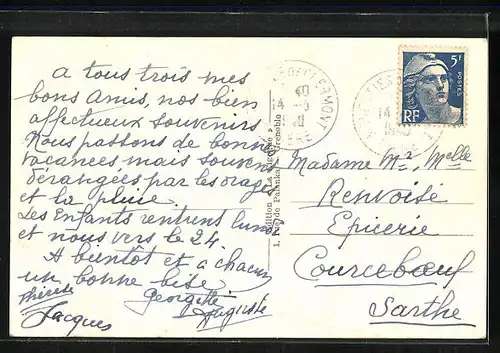 a tous trois mes
bons amis, nos bien
affectueux souvenirs
Nous passons de bonnes
vacances mais souvent
dérangées par les orages
et la pluie.
Les Enfants rentrent lundi
et nous vers le 24.
A bientôt et à chacun
une bonne bise
Georgette
Auguste
Jacques
1, Rue de Grenoble
5F
POSTES
RF
Madame Mr, Melle
Renvoisé
Epicerie
Courcebœuf
Sarthe